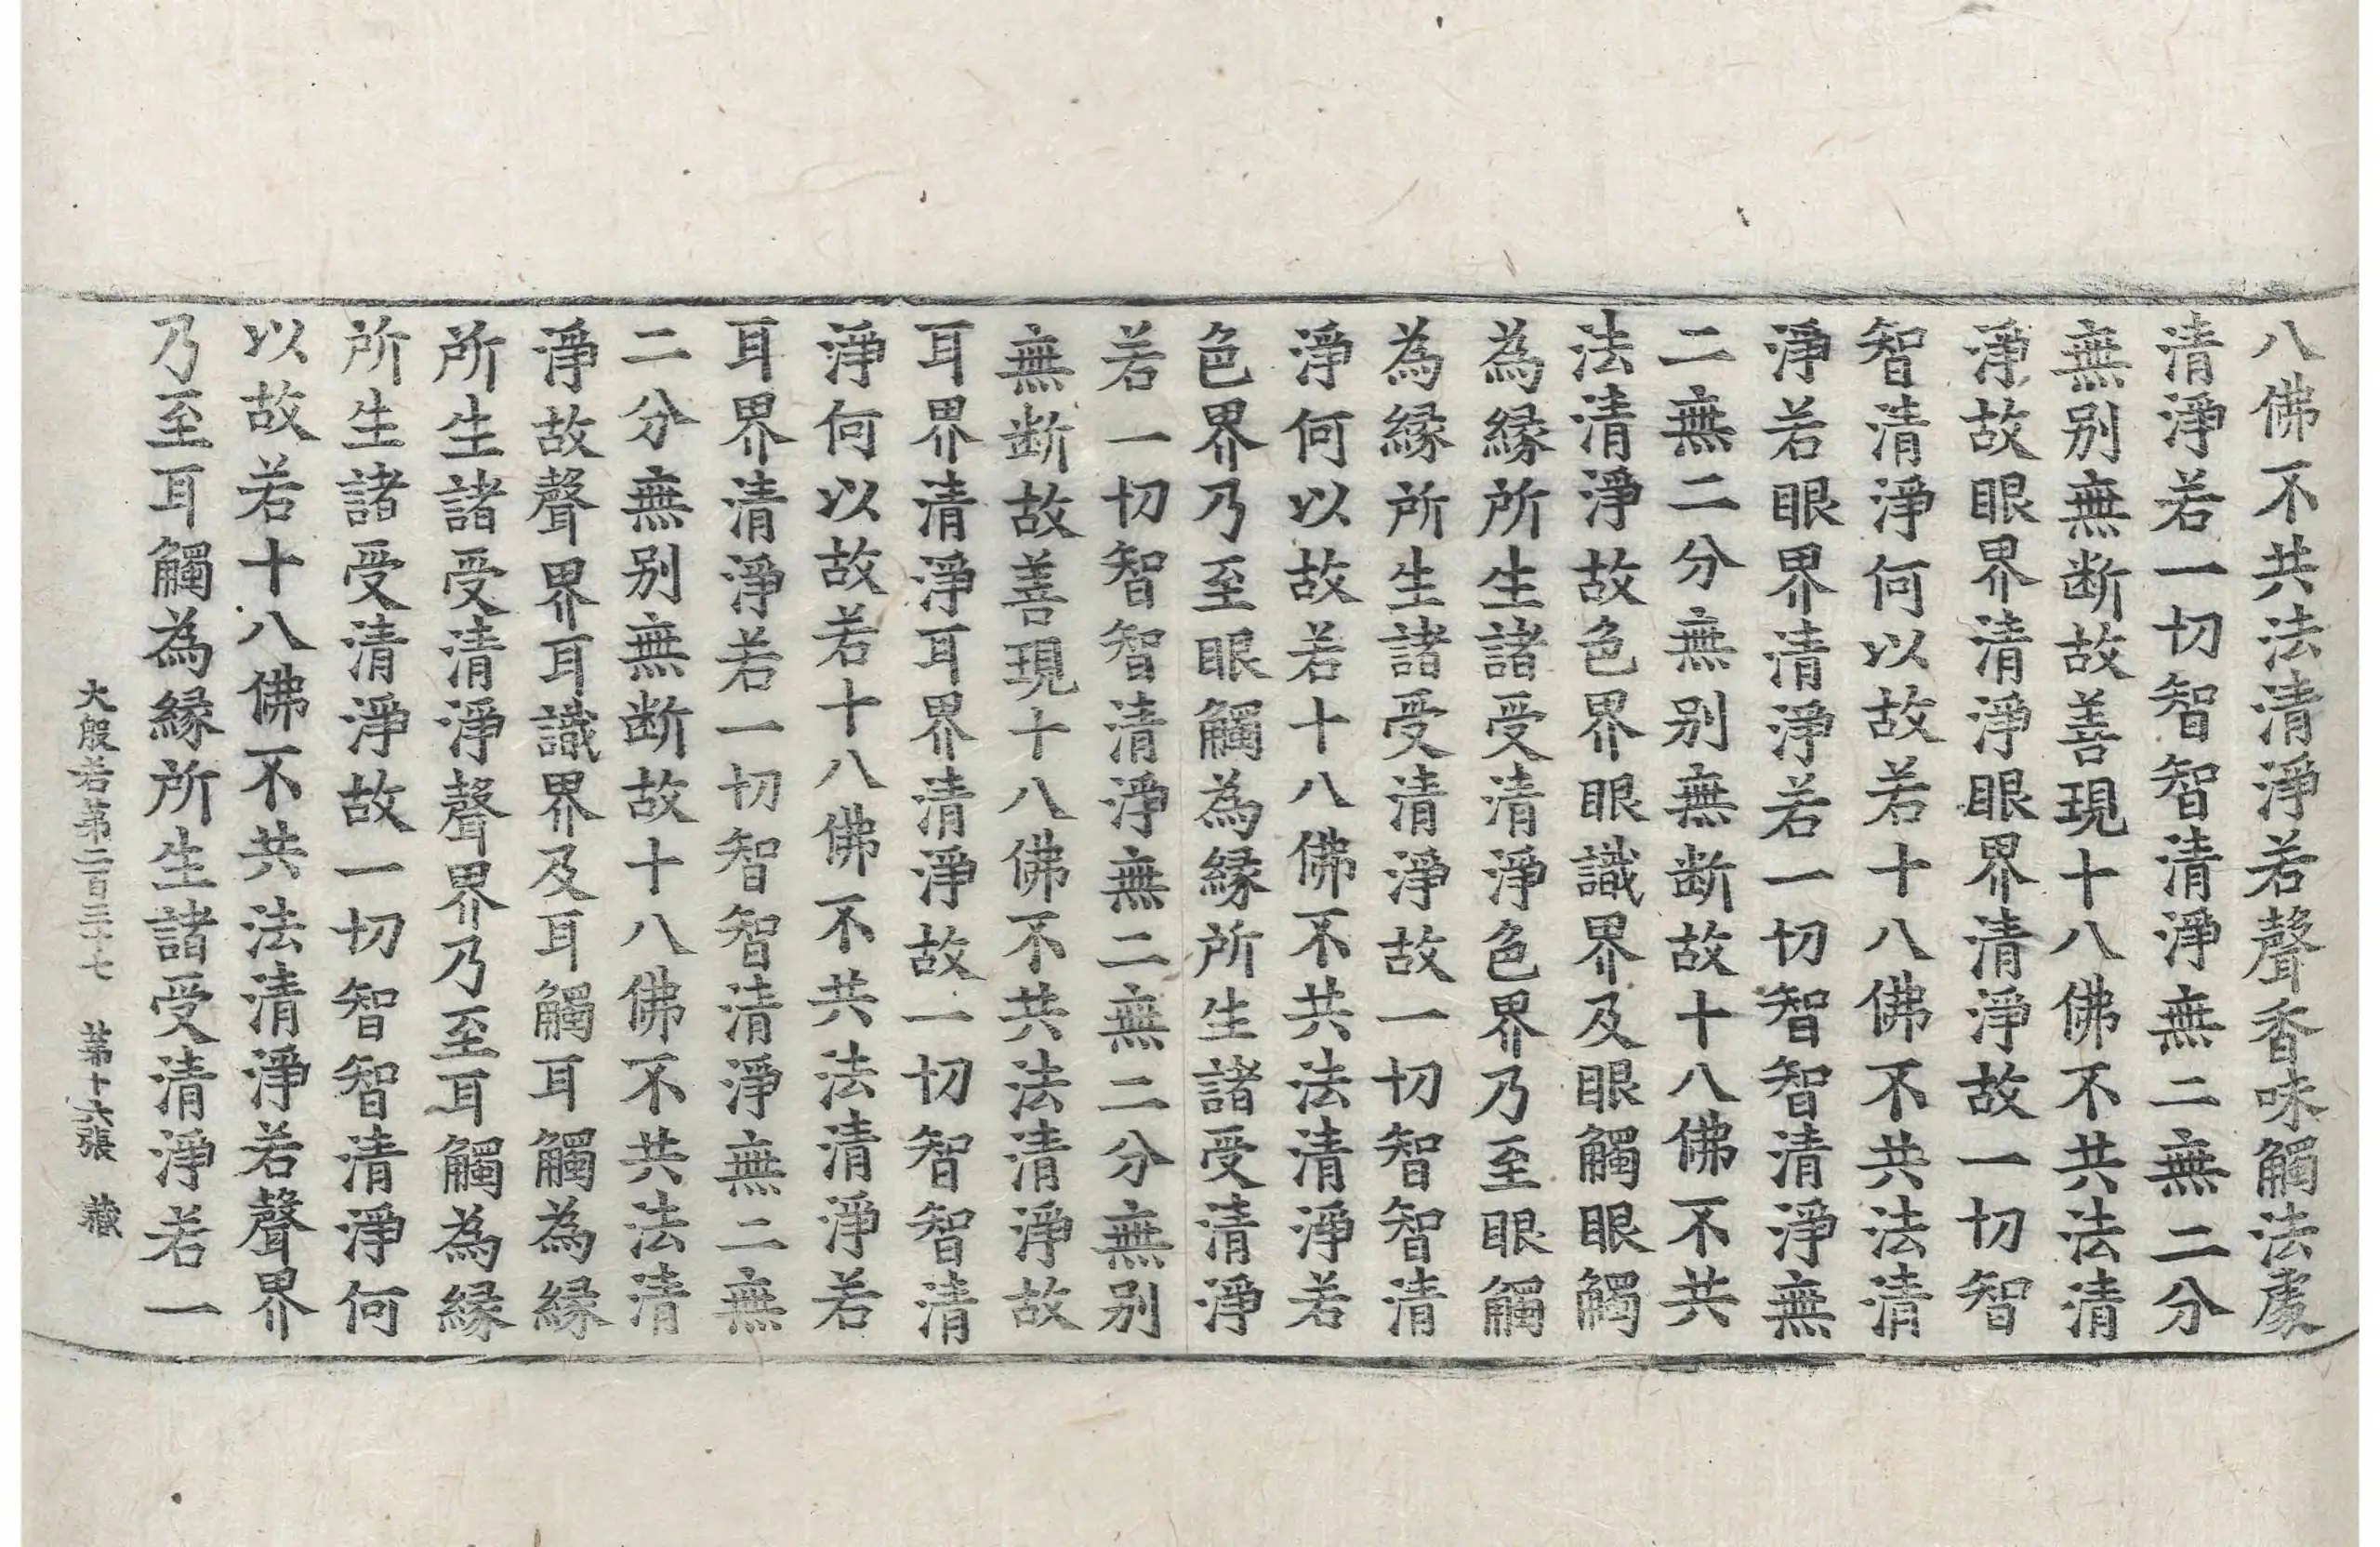 八佛不共法清淨若聲香味觸法處
清淨若一切智智清淨無二無二分
無别無断故善現十八佛不共法清
淨故眼界清淨眼界清淨故一切智
智清淨何以故若十八佛不共法清
淨若眼界清淨若一切智智清淨無
二無二分無别無断故十八佛不共
法清淨故色界眼識界及眼觸眼觸
為緣所生諸受清淨色界乃至眼觸
為緣所生諸受清淨故一切智智清
淨何以故若十八佛不共法清淨若
色界乃至眼觸為緣所生諸受清淨
若一切智智清淨無二無二分無别
無断故善現十八佛不共法清淨故
耳界清淨耳界清淨故一切智智清
淨何以故若十八佛不共法清淨若
耳界清淨若一切智智清淨無二無
二分無别無断故十八佛不共法清
淨故聲界耳識界及耳觸耳觸為緣
所生諸受清淨聲界乃至耳觸為緣
所生諸受清淨故一切智智清淨何
以故若十八佛不共法清淨若聲界
乃至耳觸為緣所生諸受清淨若一
大般若第二百三十七 第十六張 藏